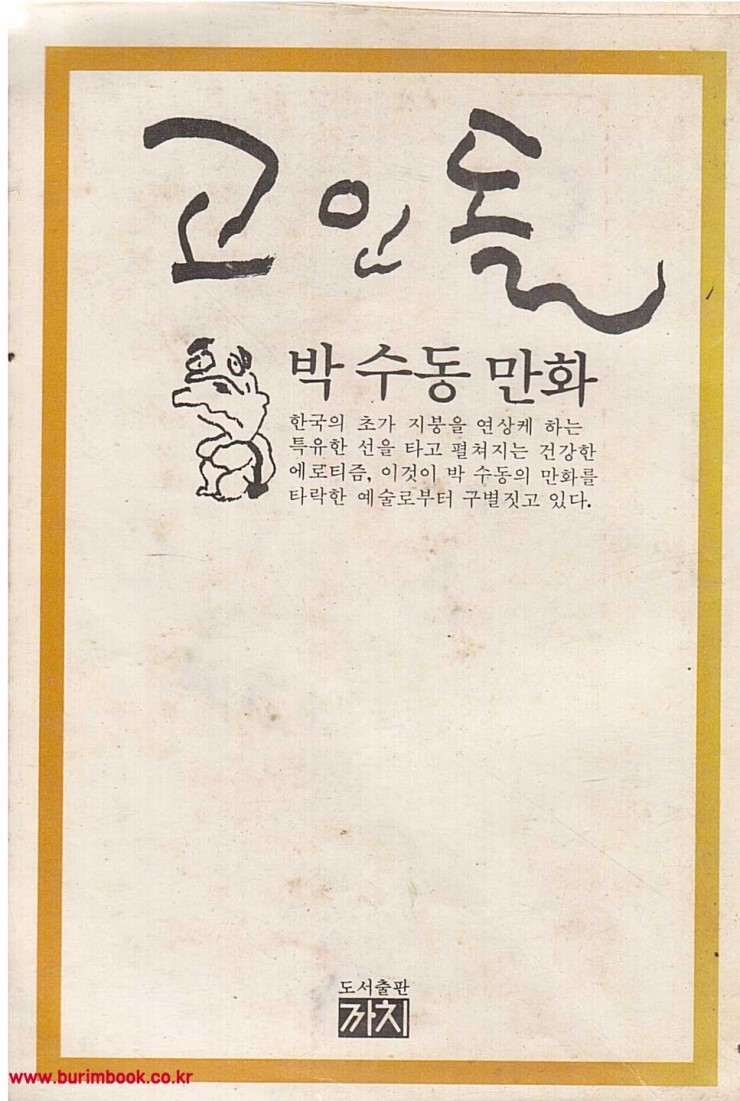 고인돌
박 수동 만화
한국의 초가 지붕을 연상케 하는
특유한 선을 타고 펼쳐지는 건강한
에로티즘, 이것이 박 수동의 만화를
타락한 예술로부터 구별짓고 있다.
도서출판
까치
www.burimbook.co.kr